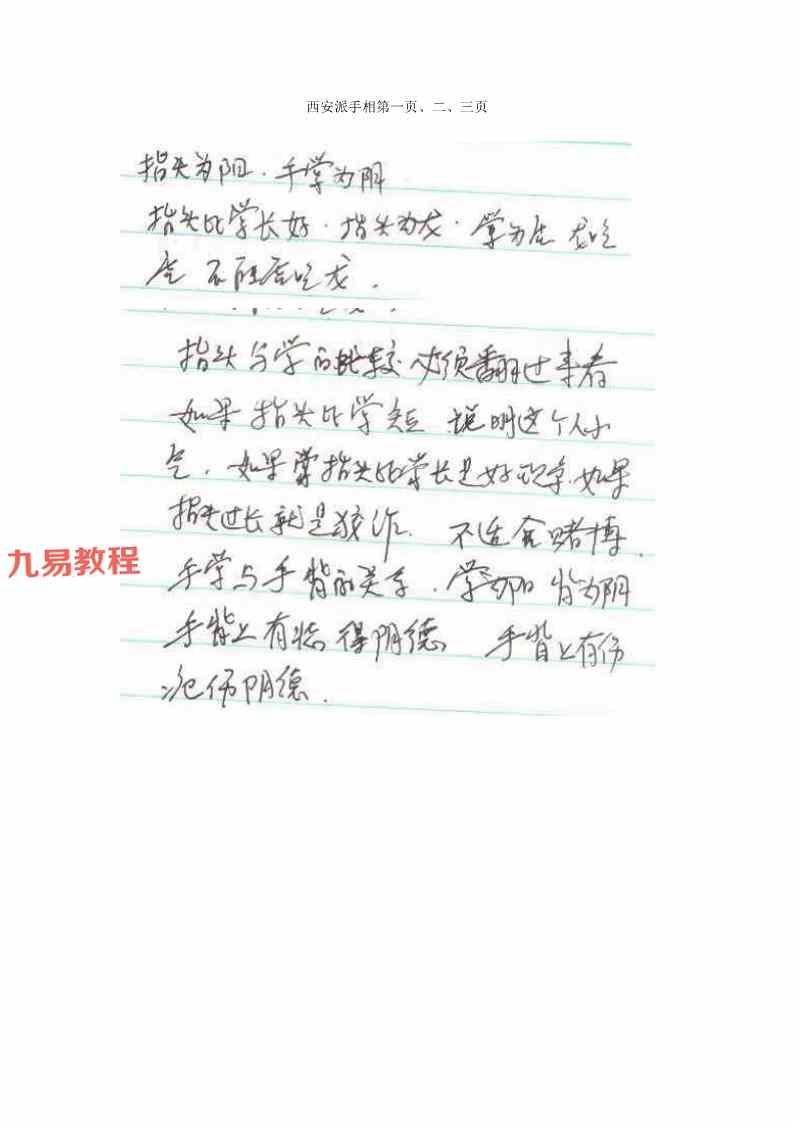 西安派手相第一页、二、三页
指头为阳.手掌为阴
指头比掌长好.指头为龙.掌为虎 龙吃
虎 不能虎吃龙.
指头与掌的比较必须翻过来看
如果指头比掌短 说明这个人小
气.如果掌指头比掌长是好现象.如果
指头过长就是狡诈. 不适合赌博.
手掌与手背的关系.掌为阳 背为阴
手背上有痣 得阴德 手背上有伤
疤伤阴德.
九易教程